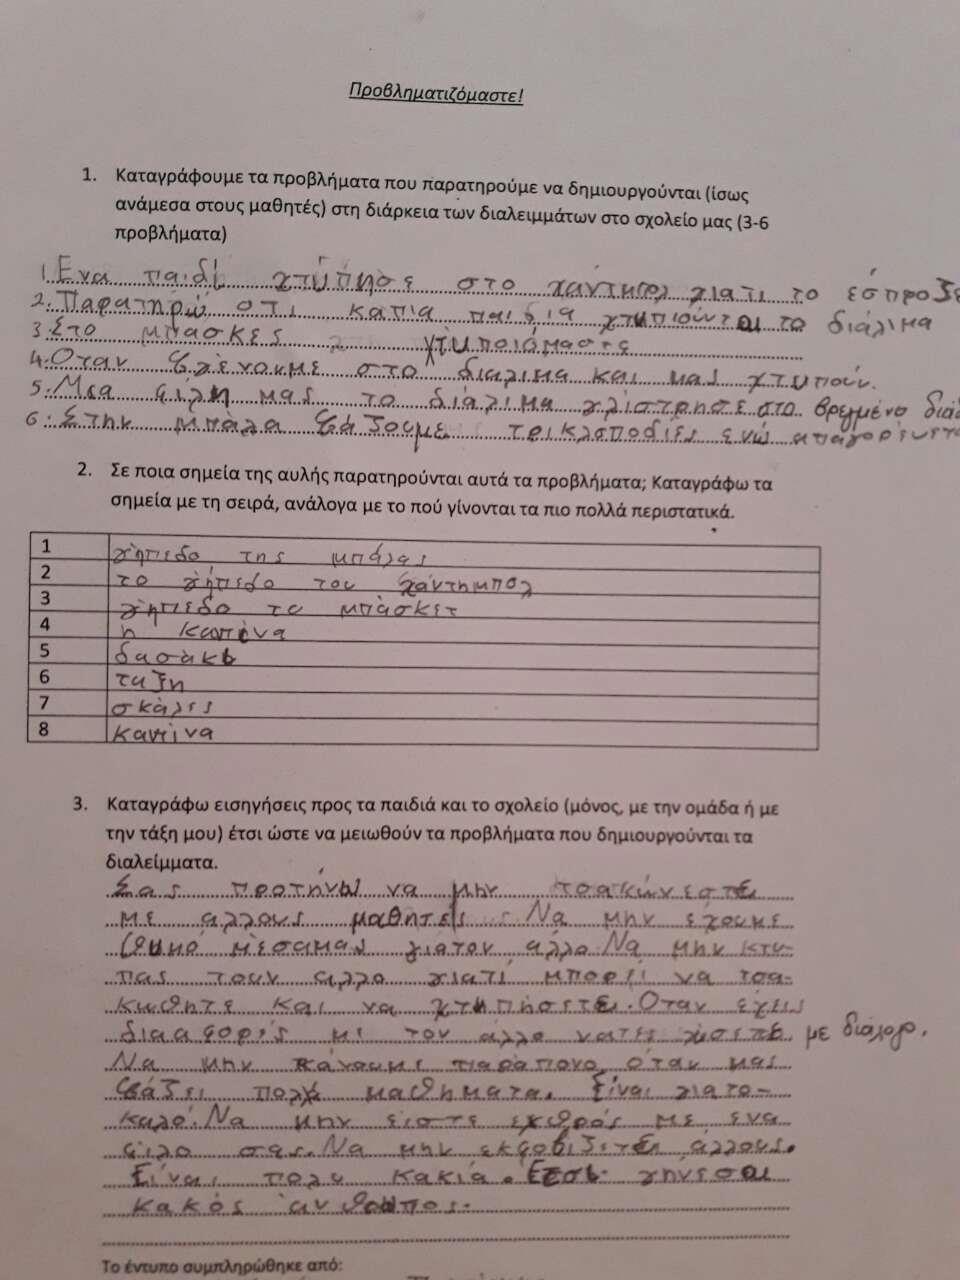 Προβληματιζόμαστε!
1. Καταγράφουμε τα προβλήματα που παρατηρούμε να δημιουργούνται (ίσως
ανάμεσα στους μαθητές) στη διάρκεια των διαλειμμάτων στο σχολείο μας (3-6
προβλήματα)
1. Ενα παιδί χτύπησε στο χάντμπολ γιατι το έσπροξε
2. Παρατηρώ οτι καπια παιδια χτυπιούνται το διάλιμα
3. Στο μπασκετ χτυποιόμαστε
4. Οταν βγένουμε στο διαλιμα και μας χτυπούν.
5. Μια φίλη μας το διάλιμα γλίστρησε στο βρεγμένο
6. Στην μπάλα βάζουμε τρικλοποδιές ενώ απαγορέυετ
2. Σε ποια σημεία της αυλής παρατηρούνται αυτά τα προβλήματα; Καταγράφω τα
σημεία με τη σειρά, ανάλογα με το πού γίνονται τα πιο πολλά περιστατικά.
1 γήπεδο της μπάλας
2 το γήπεδο του χάντημπολ
3 γήπεδο το μπάσκετ
4 η καντίνα
5 δασάκι
6 ταξη
7 σκάλες
8 καντίνα
3. Καταγράφω εισηγήσεις προς τα παιδιά και το σχολείο (μόνος, με την ομάδα ή με
την τάξη μου) έτσι ώστε να μειωθούν τα προβλήματα που δημιουργούνται τα
διαλείμματα.
Σας προτήνω να μην τσακώνεστε
με αλλους μαθητές. Να μην έχουμε
θυμό μέσαμας γιατον άλλο. Να μην κτυ-
πας τουν αλλο γιατί μπορεί να τσα-
κωθητε και να χτυπήσετε. Οταν έχεις
διααφορές με τον άλλο με διάλογο.
Να μην κάνουμε παράπονο όταν μας
βάζει πολλά μαθήματα. Είναι γιατο-
καλό. Να μην είστε εχθρός με ενα
φίλο σας. Να μην εκφοβίζετε άλλους.
Είναι πολυ κακία. Ετσι γηνεσαι
κακός άνθρωπος.
Το έντυπο συμπληρώθηκε από: